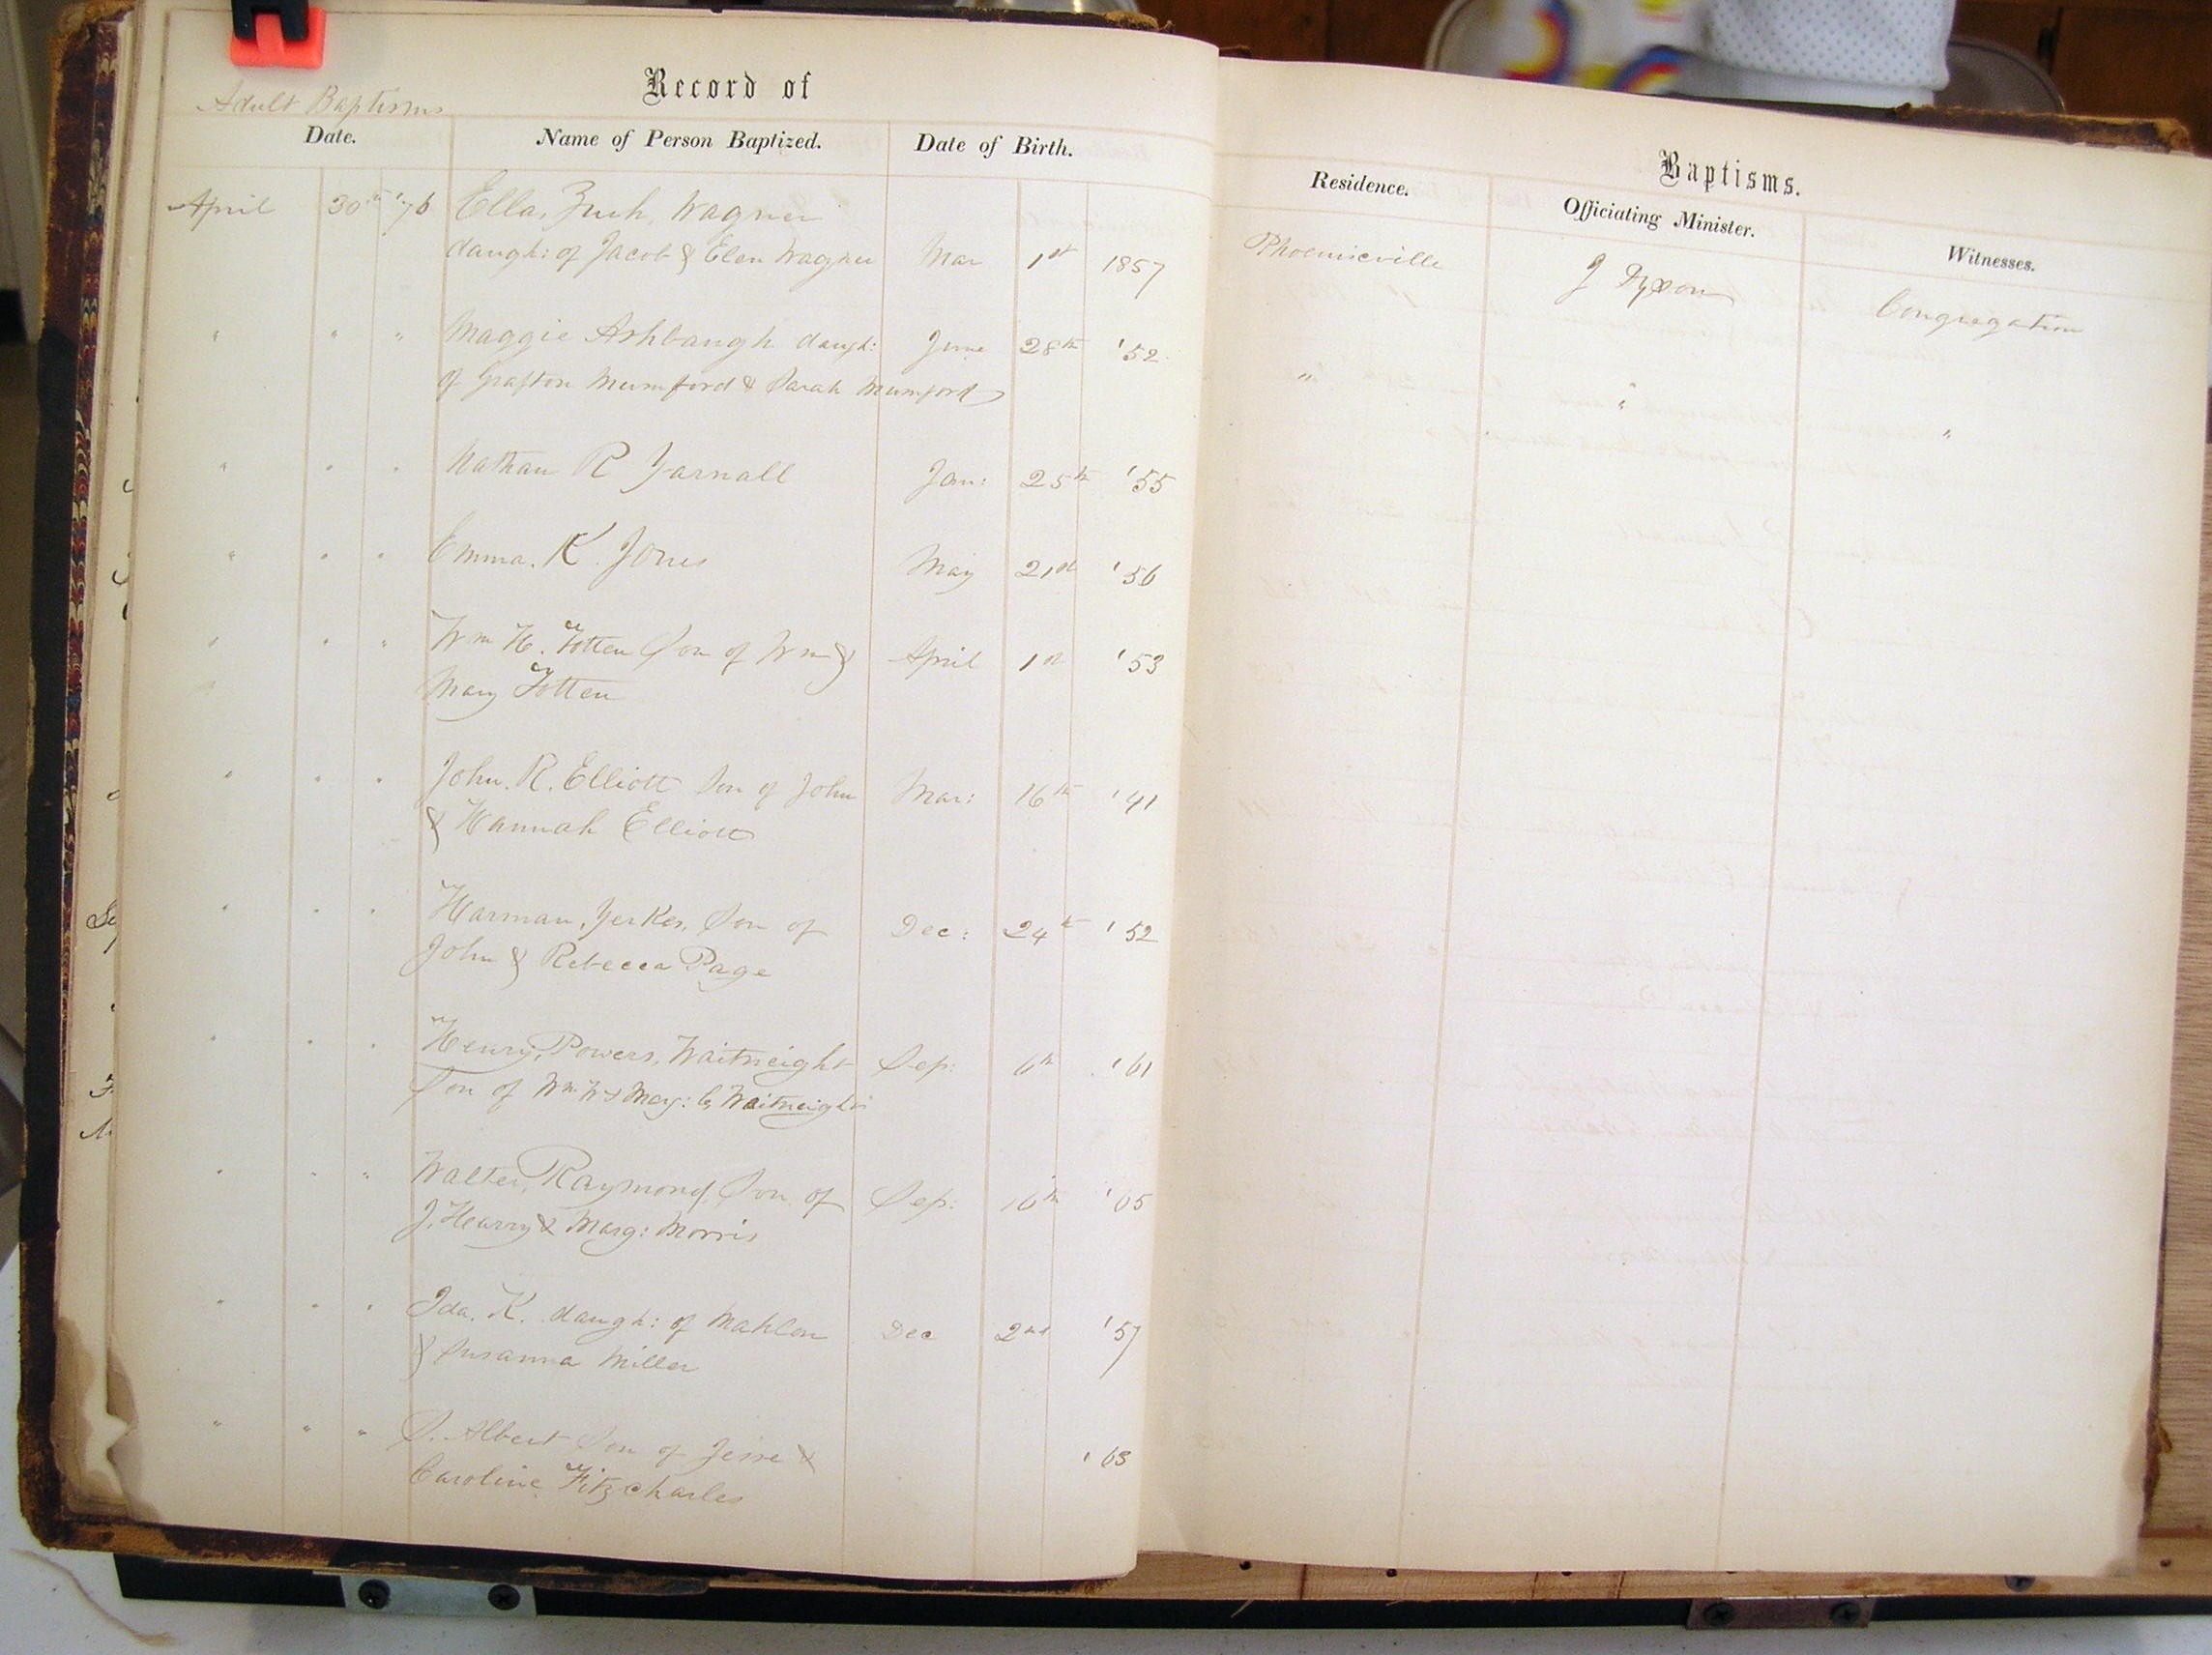 Record of
Adult Baptisms
Date. Name of Person Baptized. Date of Birth.
April 30th '76 Ella, Zuch, Wagner
daugh: of Jacob & Elen Wagner Mar 1st 1857
" " " Maggie Ashbaugh daugh: June 28th '52
of Grafton Mumford & Sarah Mumford
" " " Nathan R Yarnall Jan: 25th '55
" " " Emma. K. Jones May 21st '56
" " " Wm H. Totten Son of Wm & April 1st '53
Mary Totten
" " " John. R. Elliott Son of John Mar: 16th '41
& Hannah Elliott
" " " Harman, Yerkes, Son of Dec: 24th '52
John & Rebecca Page
" " " Henry, Powers, Waitneight Sep: 6th '61
Son of Wm W & Mary: C, Waitneight
" " " Walter, Raymond, Son of Sep: 16th '65
J. Hearry & Marg: Morris
" " " Ida. K. daugh: of Mahlon Dec 2nd '57
& Susanna Miller
" " " S. Albert Son of Jesse & '63
Caroline Fitzcharles
Baptisms.
Residence. Officiating Minister. Witnesses.
Phoenixville J Dyson Congregation
" " "